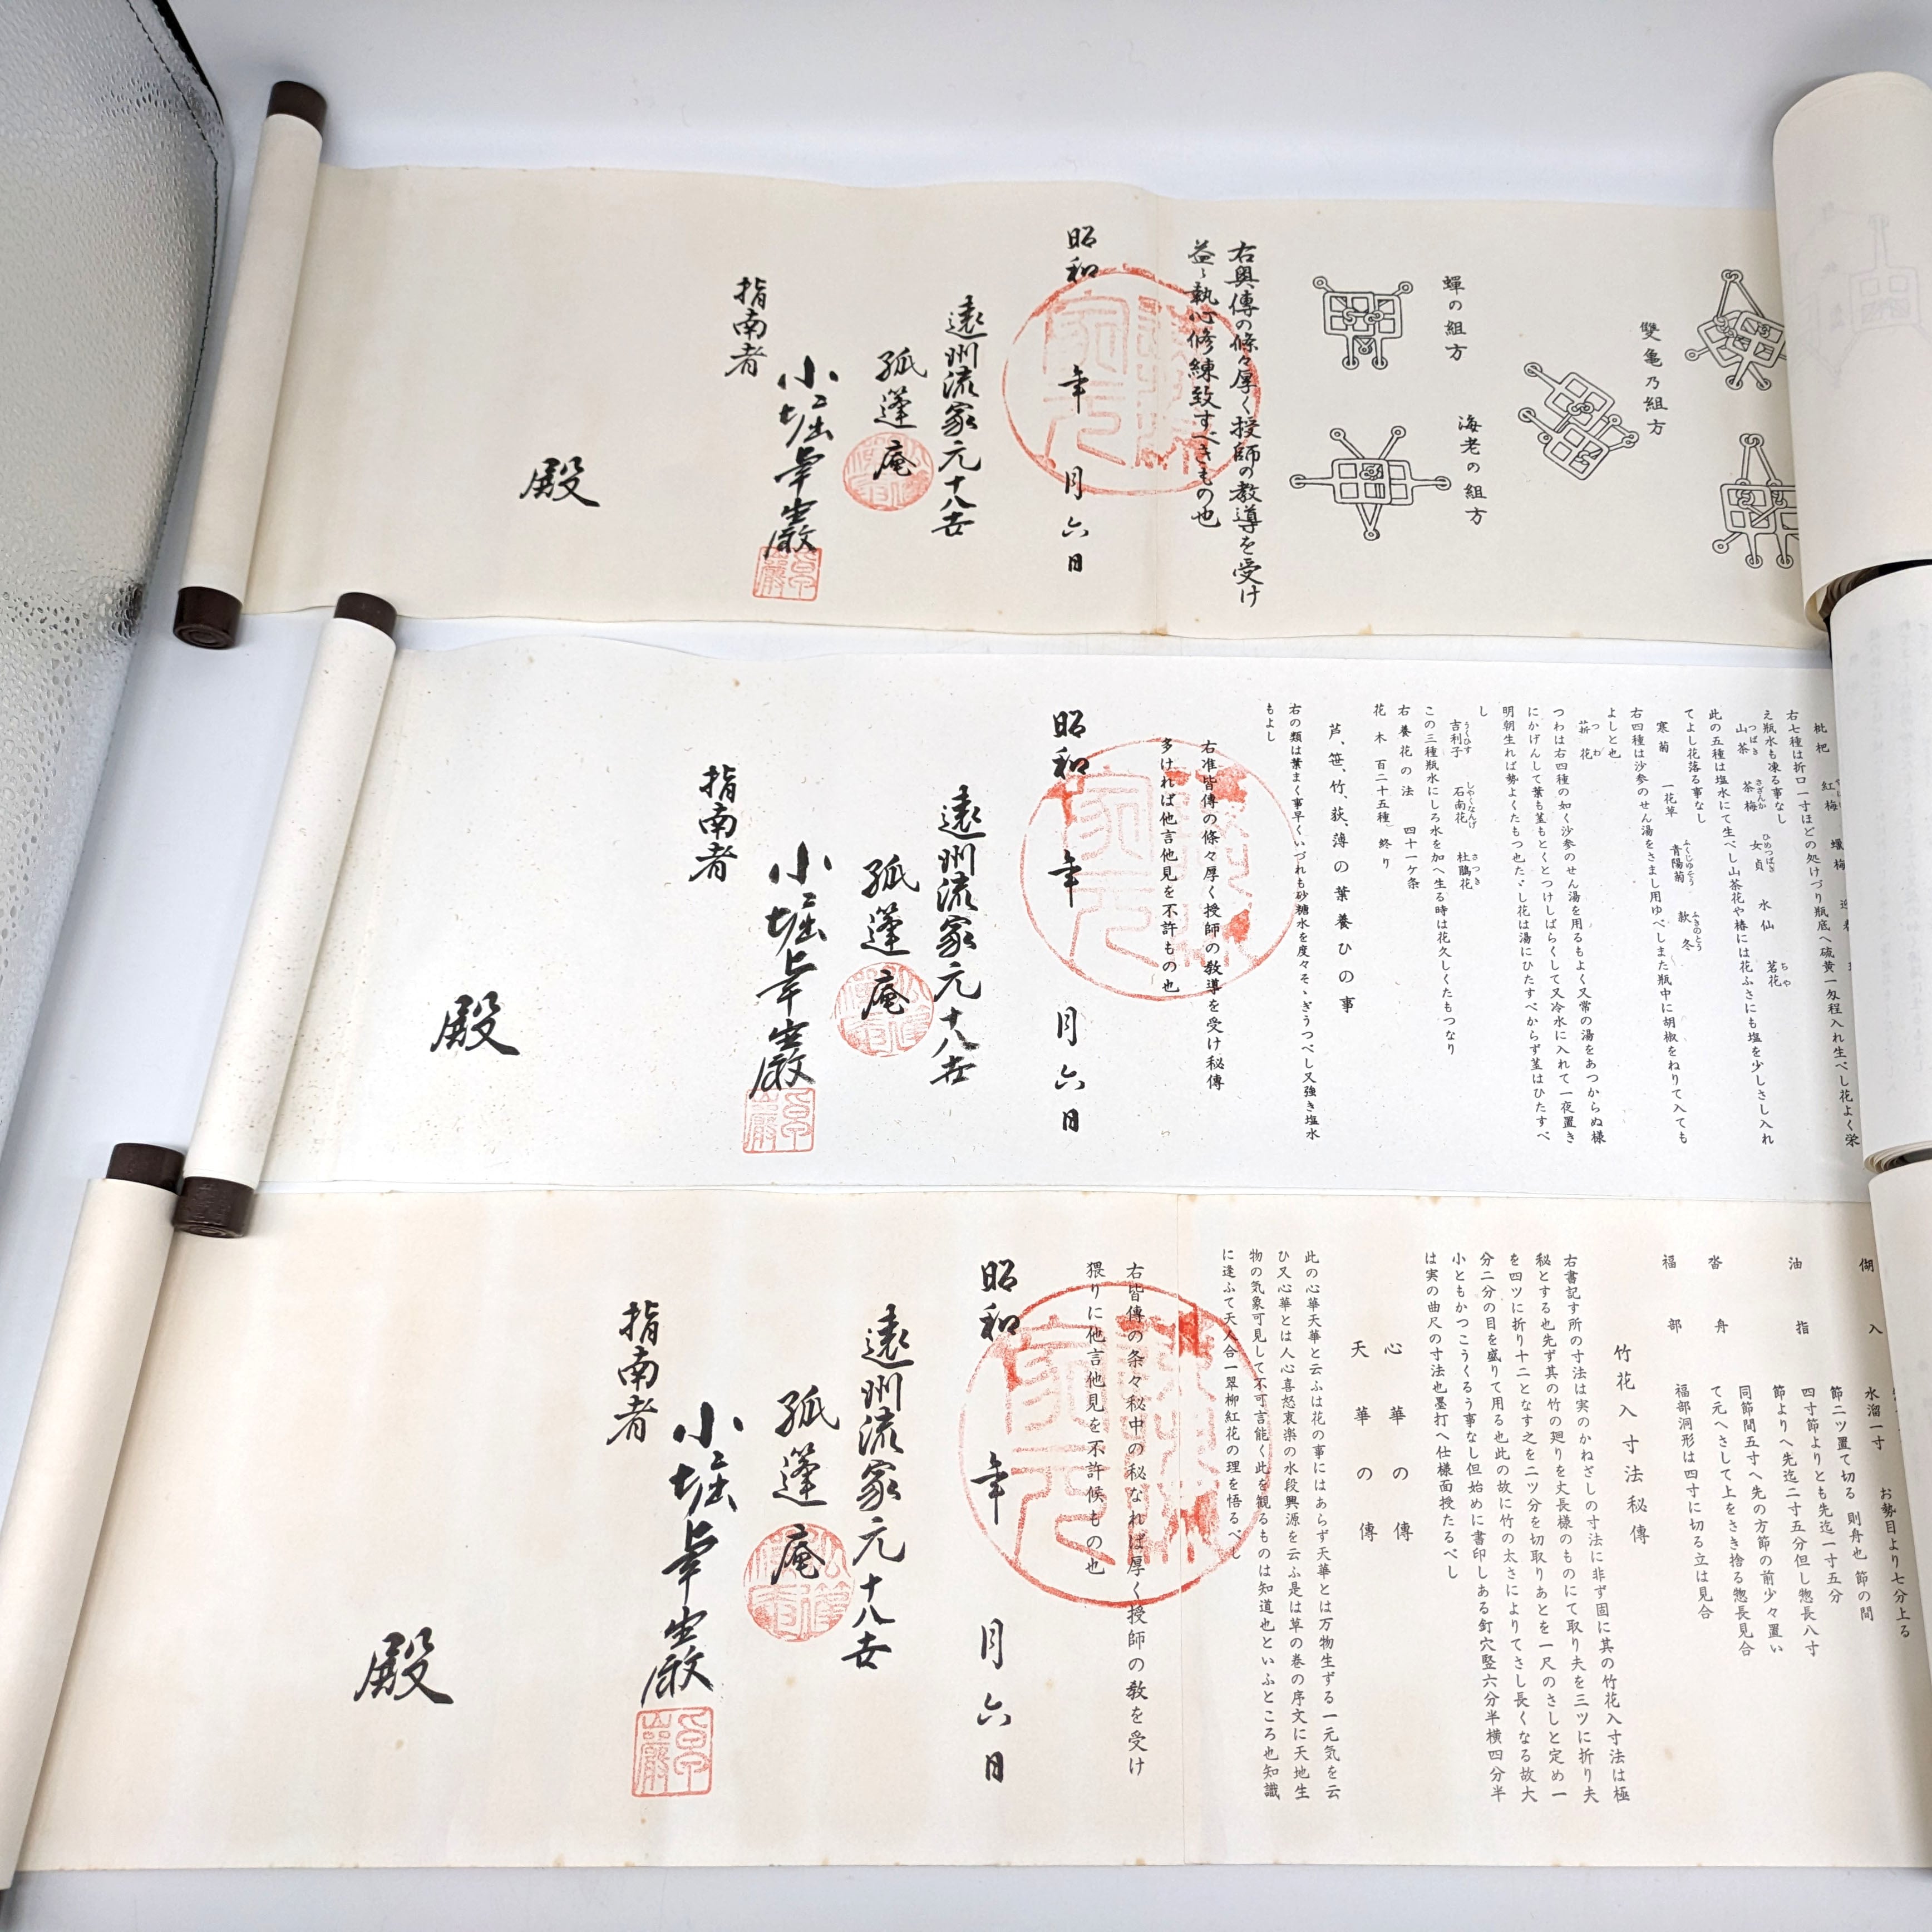 雙亀乃組方
蟬の組方
海老の組方
右奥傳の條々厚く授師の教導を受け
益々執心修練致すべきもの也
昭和 年 月六日
遠州流家元十八世
孤蓬庵
小堀卓巖
指南者
殿
枇杷 紅梅 蠟梅
右七種は折口一寸ほどの処けづり瓶底へ硫黄一匁程入れ生べし花よく栄
え瓶水も凍る事なし
山茶 茶梅 女貞 水仙 茗花
つばき さざんか ひめつばき ちや
此の五種は塩水にて生べし山茶花や椿には花ふさにも塩を少しさし入れ
てよし花落る事なし
寒菊 一花草 青陽菊 款冬
ふくじゅそう ふきのとう
右四種は沙参のせん湯をさまし用ゆべしまた瓶中に胡椒をねりて入ても
よしと也
花
つわ
つわは右四種の如く沙参のせん湯を用るもよく又常の湯をあつからぬ様
にかげんして葉も茎もとくとつけしばらくして又冷水に入れて一夜置き
明朝生れば勢よくたもつ也たゞし花は湯にひたすべからず茎はひたすべ
し
吉利子 石南花 杜鵑花
うぐひす しやくなんげ さつき
この三種瓶水にしろ水を加へ生る時は花久しくたもつなり
右養花の法 四十一ケ条
花木 百二十五種 終り
芦、笹、竹、荻、薄の葉養ひの事
右の類は葉まく事早くいづれも砂糖水を度々そゝぎうつべし又強き塩水
もよし
右准皆傳の條々厚く授師の教導を受け秘傳
多ければ他言他見を不許もの也
昭和 年 月六日
遠州流家元十八世
孤蓬庵
小堀卓巖
指南者
殿
お勢目より七分上る
入 水溜一寸
節二ツ置て切る 則舟也 節の間
四寸節よりとも先迄一寸五分
油指 節よりへ先迄二寸五分但し惣長八寸
同節間五寸へ先の方節の前少々置い
舟 て元へさして上をさき捨る惣長見合
福部 福部洞形は四寸に切る立は見合
竹花入寸法秘傳
右書記す所の寸法は実のかねざしの寸法に非ず固に其の竹花入寸法は極
秘とする也先ず其の竹の廻りを丈長様のものにて取り夫を三ツに折り夫
を四ツに折り十二となす之を二ツ分を切取りあとを一尺のさしと定め一
分二分の目を盛りて用る也此の故に竹の太さによりてさし長くなる故大
小ともかつこうくるう事なし但始めに書印しある釘穴竪六分半横四分半
は実の曲尺の寸法也墨打へ仕様面授たるべし
心華の傳
天華の傳
此の心華天華と云ふは花の事にはあらず天華とは万物生ずる一元気を云
ひ又心華とは人心喜怒哀楽の水段興源を云ふ是は草の巻の序文に天地生
物の気象可見して不可言能く此を観るものは知道也といふところ也知識
に逢ふて天人合一翠柳紅花の理を悟るべし
右皆傳の条々秘中の秘なれば厚く授師の教を受け
猥りに他言他見を不許候もの也
昭和 年 月六日
遠州流家元十八世
孤蓬庵
小堀卓巖
指南者
殿